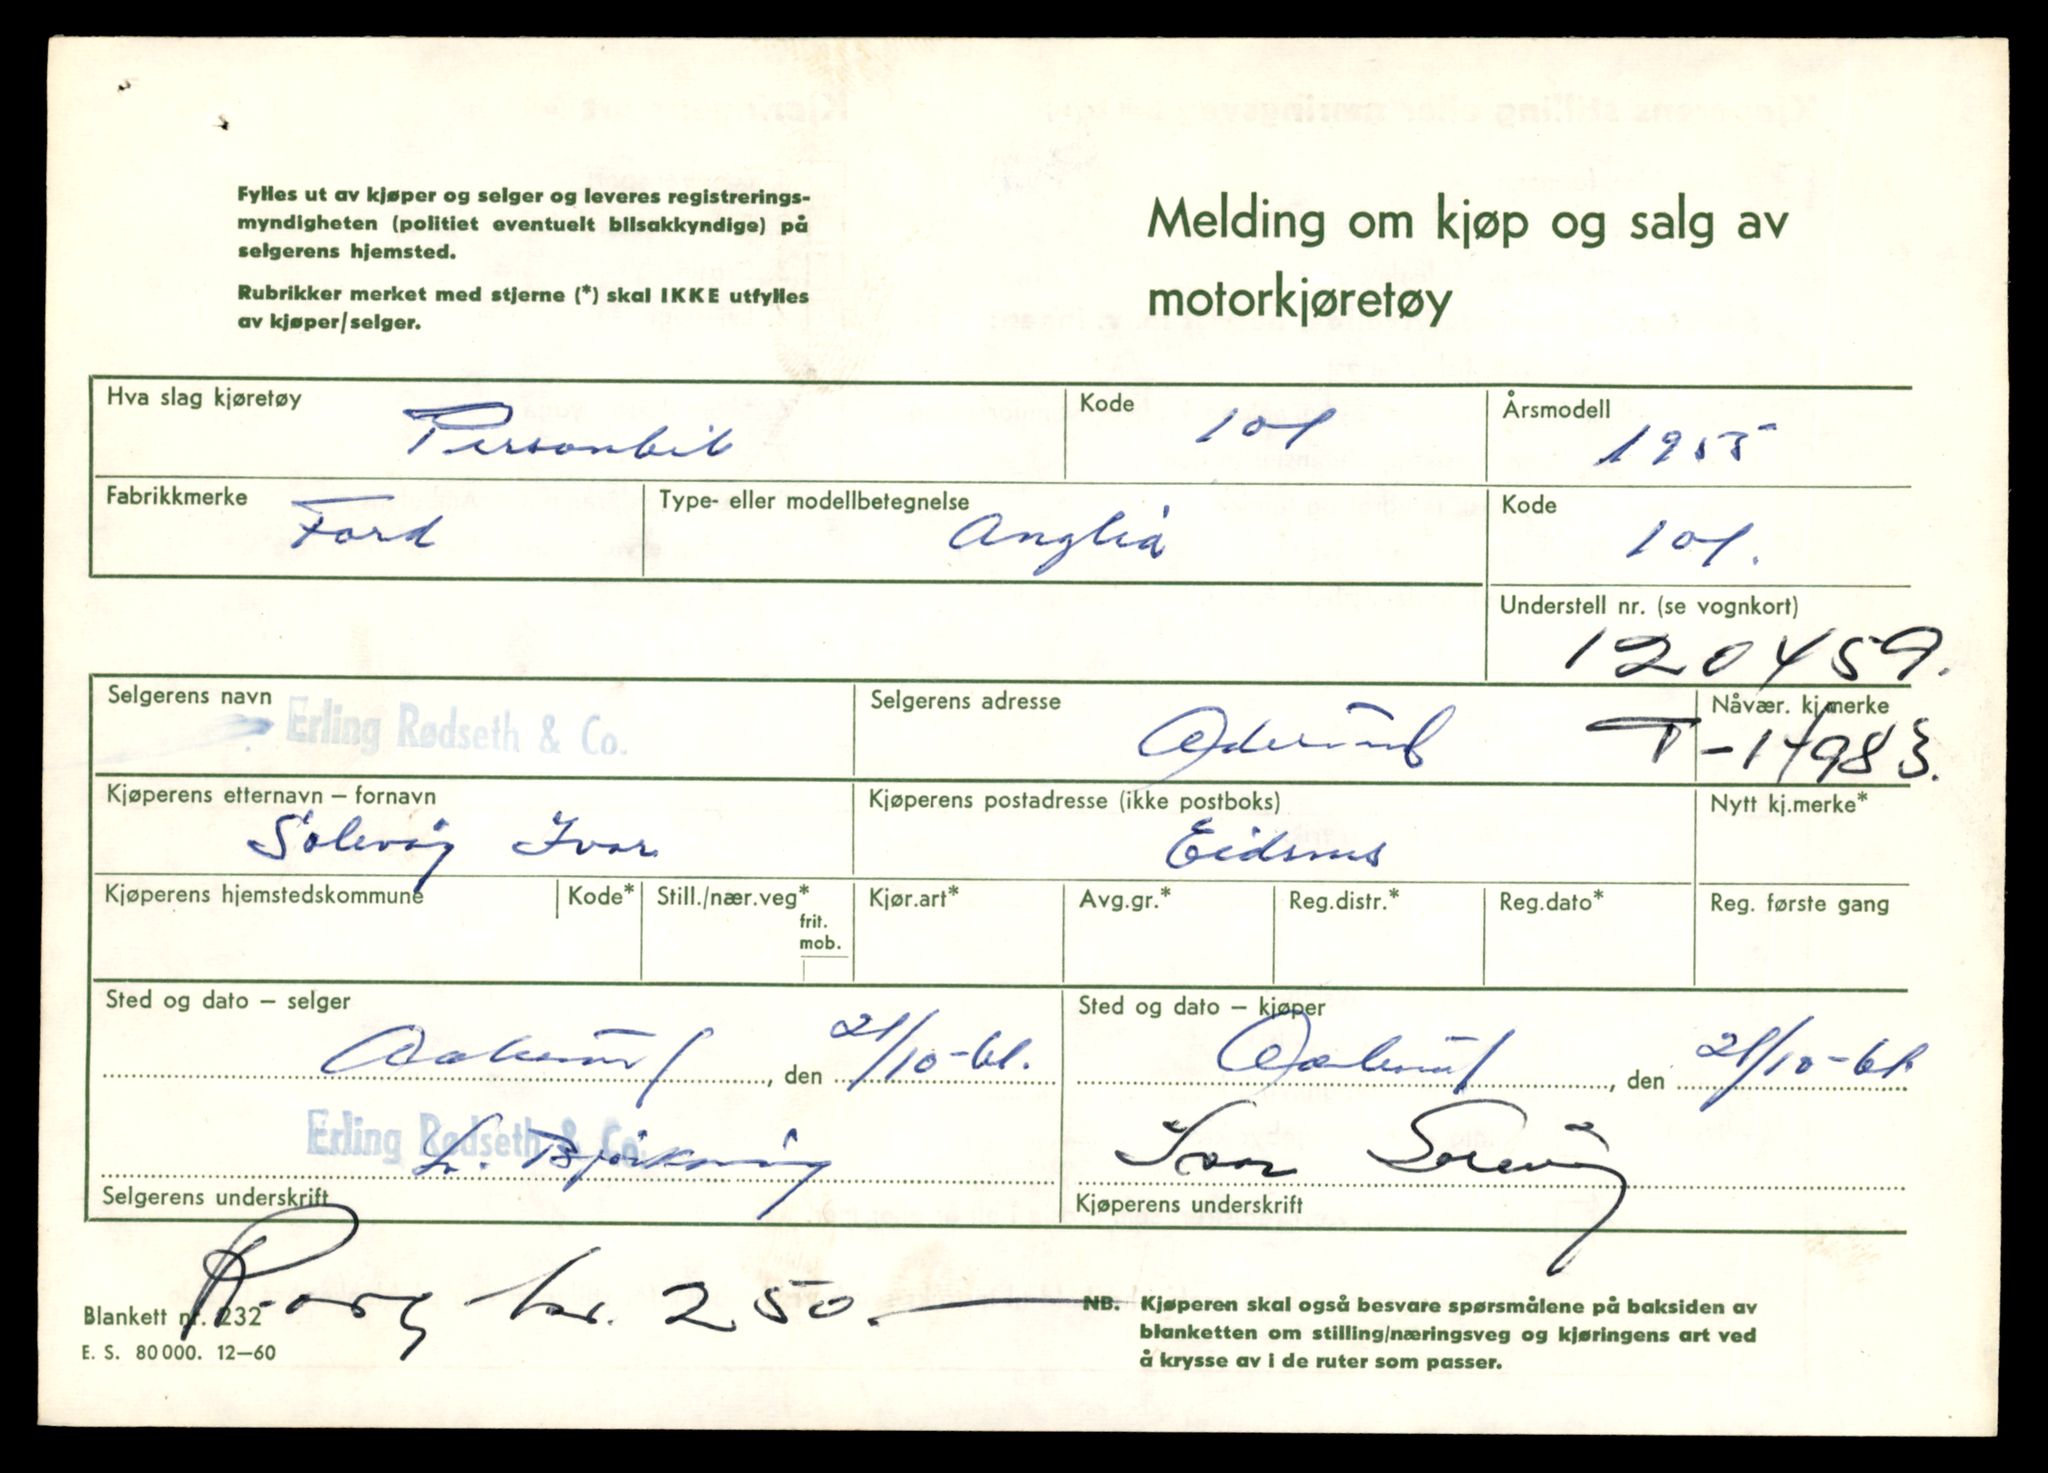 Fylles ut av kjøper og selger og leveres registrerings-
myndigheten (politiet eventuelt bilsakkyndige) på
selgerens hjemsted.
Rubrikker merket med stjerne (*) skal IKKE utfylles
av kjøper/selger.
Melding om kjøp og salg av
motorkjøretøy
Hva slag kjøretøy Personbil Kode 101 Årsmodell 1955
Fabrikkmerke Ford Type- eller modellbetegnelse Anglia Kode 101.
Understell nr. (se vognkort)
120459.
Selgerens navn Erling Rødseth & Co. Selgerens adresse Nåvær. kj.merke
T-14983.
Kjøperens etternavn – fornavn Kjøperens postadresse (ikke postboks) Nytt kj.merke*
Solevåg Ivar Eidsnes
Kjøperens hjemstedskommune Kode* Still./nær.veg* Kjør.art* Avg.gr.* Reg.distr.* Reg.dato* Reg. første gang
frit.
mob.
Sted og dato – selger Sted og dato – kjøper
Aalesund, den 21/10-61. Aalesund, den 21/10-61.
Erling Rødseth & Co. Ivar Solevåg
Selgerens underskrift Kjøperens underskrift
kr. 250.—
Blankett nr. 232
E. S. 80000. 12–60
NB. Kjøperen skal også besvare spørsmålene på baksiden av
blanketten om stilling/næringsveg og kjøringens art ved
å krysse av i de ruter som passer.